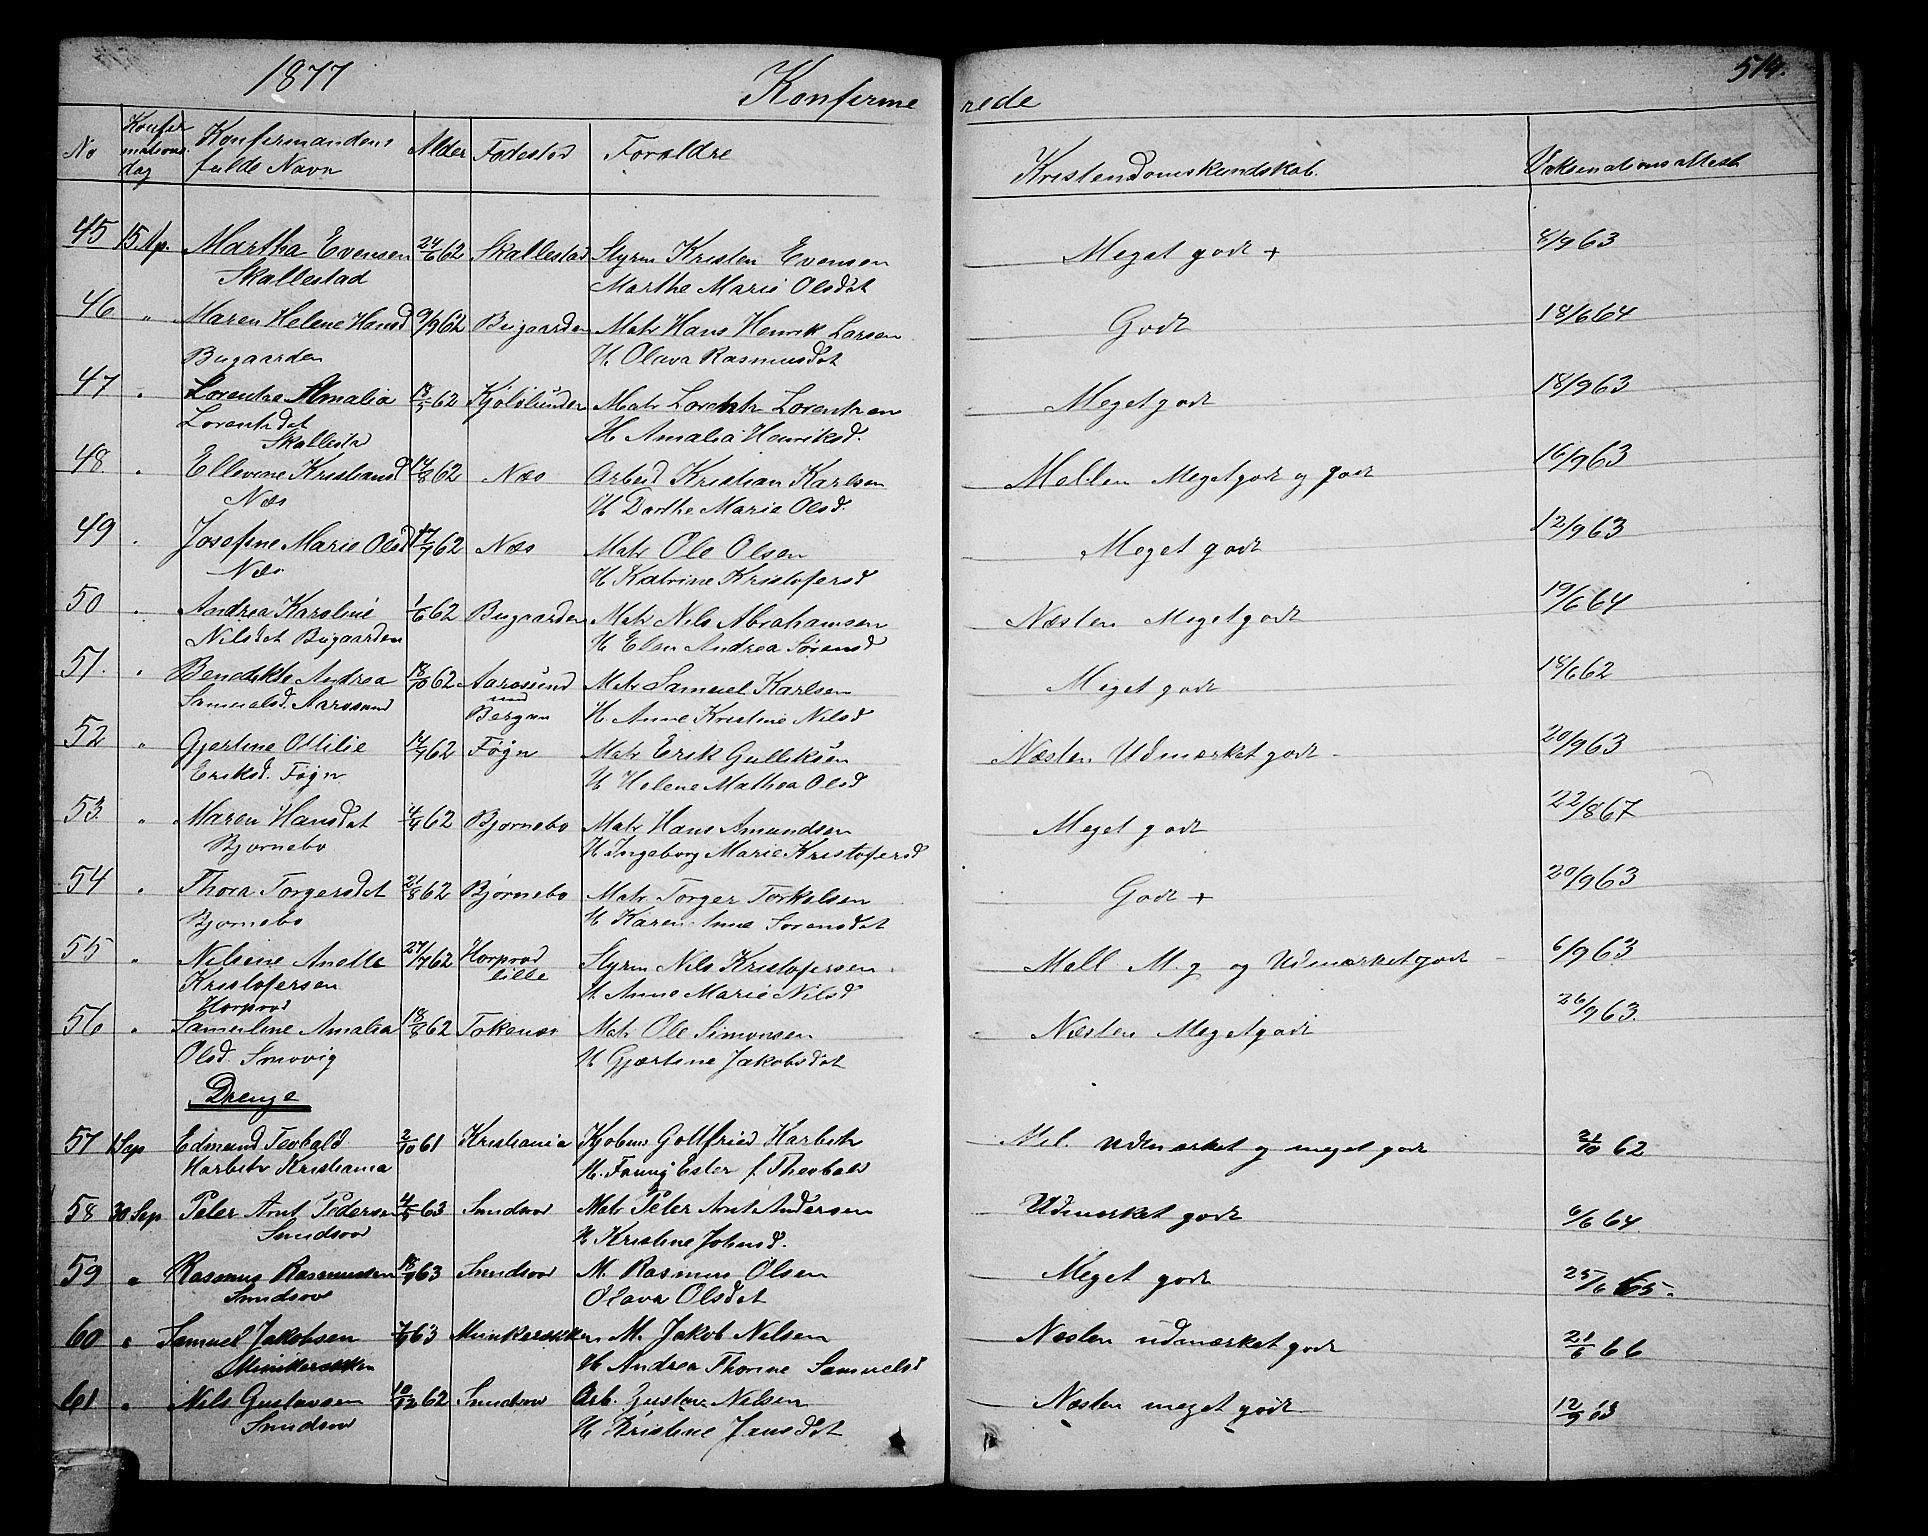 1877 Konfirme rede 514.
No Konfirmationsdag Konfirmandens fulde Navn Alder Fødested Forældre Kristendomskundskab. Vaksenationsattest
45 15 Ap. Martha Evensen 24/6 62 Skallestad Styrm Kristen Evensen Meget godt + 8/9 63
Skallestad Marthe Marie Olsdat
46 " Maren Helene Hansd 9/9 62 Bugaarden Matr Hans Henrik Larsen Godt 18/6 64
Bugaarden H Olava Rasmusdat
47 " Lorentze Amalia 62 Matr Lorentz Lorentzen Meget godt 18/9 63
Lorentzdat H Amalia Henriksd.
Skallestd
48 " Ellevine Kristiansd 14/8 62 Næs Arbeid Kristian Karlsen Mellem Meget godt og godt 16/9 63
Næs H Dorthe Marie Olsd.
49 " Josefine Marie Olsd 17/7 62 Næs Matr Ole Olsen Meget godt 12/9 63
Næs H Katrine Kristofersd
50 " Andrea Karoline 1/6 62 Bugaarden Matr Nils Abrahamsen Næsten Meget godt 19/6 64
Nilsdat Bugaarden H Elen Andrea Sørensd
51. " Bendikte Andrea 18/10 62 Aarøsund Matr Samuel Karlsen Meget godt 18/6 62
Samuelsd. Aarosund Bergan H Anne Kristine Nilsd
52 " Gjertine Ottilie 62 Føyn Matr Erik Gulliksen Næsten Udmærket godt 20/9 63
Eriksd. Føyn H Helene Mathea Olsd
53 " Maren Hansdat 4/9 62 Bjørnebo Matr Hans Amundsen Meget godt 22/8 67
Bjørnebo H Ingeborg Marie Kristofersd
54 " Thora Torgersdat 21/8 62 Bjørnebo Matr Torger Torkelsen Godt + 20/9 63
Bjørnebo H Karen Anne Sorensdat
55 " Nilsine Anette 27/7 62 Horprod lille Styrm Nils Kristofersen Mell. M. g og Udmærket godt 6/9 63
Kristofersen H Anne Marie Nilsd
Horprod
56 " Samuline Amalia 18/8 62 Tokenæs Matr Ole Simonsen Næsten Meget godt 26/9 63.
Olsd. Smovig H Gjærtine Jakobsdat
Drenge
57 1 Sep Edmund Teobald 2/10 61 Kristiania Kjøbm Gottfried Harbitz Mel. Udmærket og meget godt 62
Harbitz Kristiania H. Fanny Ester f. Theobald
58 30 Sep Peter Arnt Pedersen 4/5 63 Smidsrød Matr Peter Arnt Andersen Udmærket godt 6/6 64
Smidsrød H Kristine Johnsd.
59 " Rasmus Rasmussen 63 Smidsrød M. Rasmus Olsen Meget godt 25/6 65.
Smidsrød Olava Olsdat
60 " Samuel Jakobsen 63 Munkerekken M. Jakob Nilsen Næsten udmærket godt 21/6 66
Munkerekken H Andrea Thorine Samuelsd
61 " Nils Gustavsen 10/12 62 Smidsrød Arb. Gustav Nilsen Næsten meget godt 12/9 63
Smidsrød H Kristine Jansdat